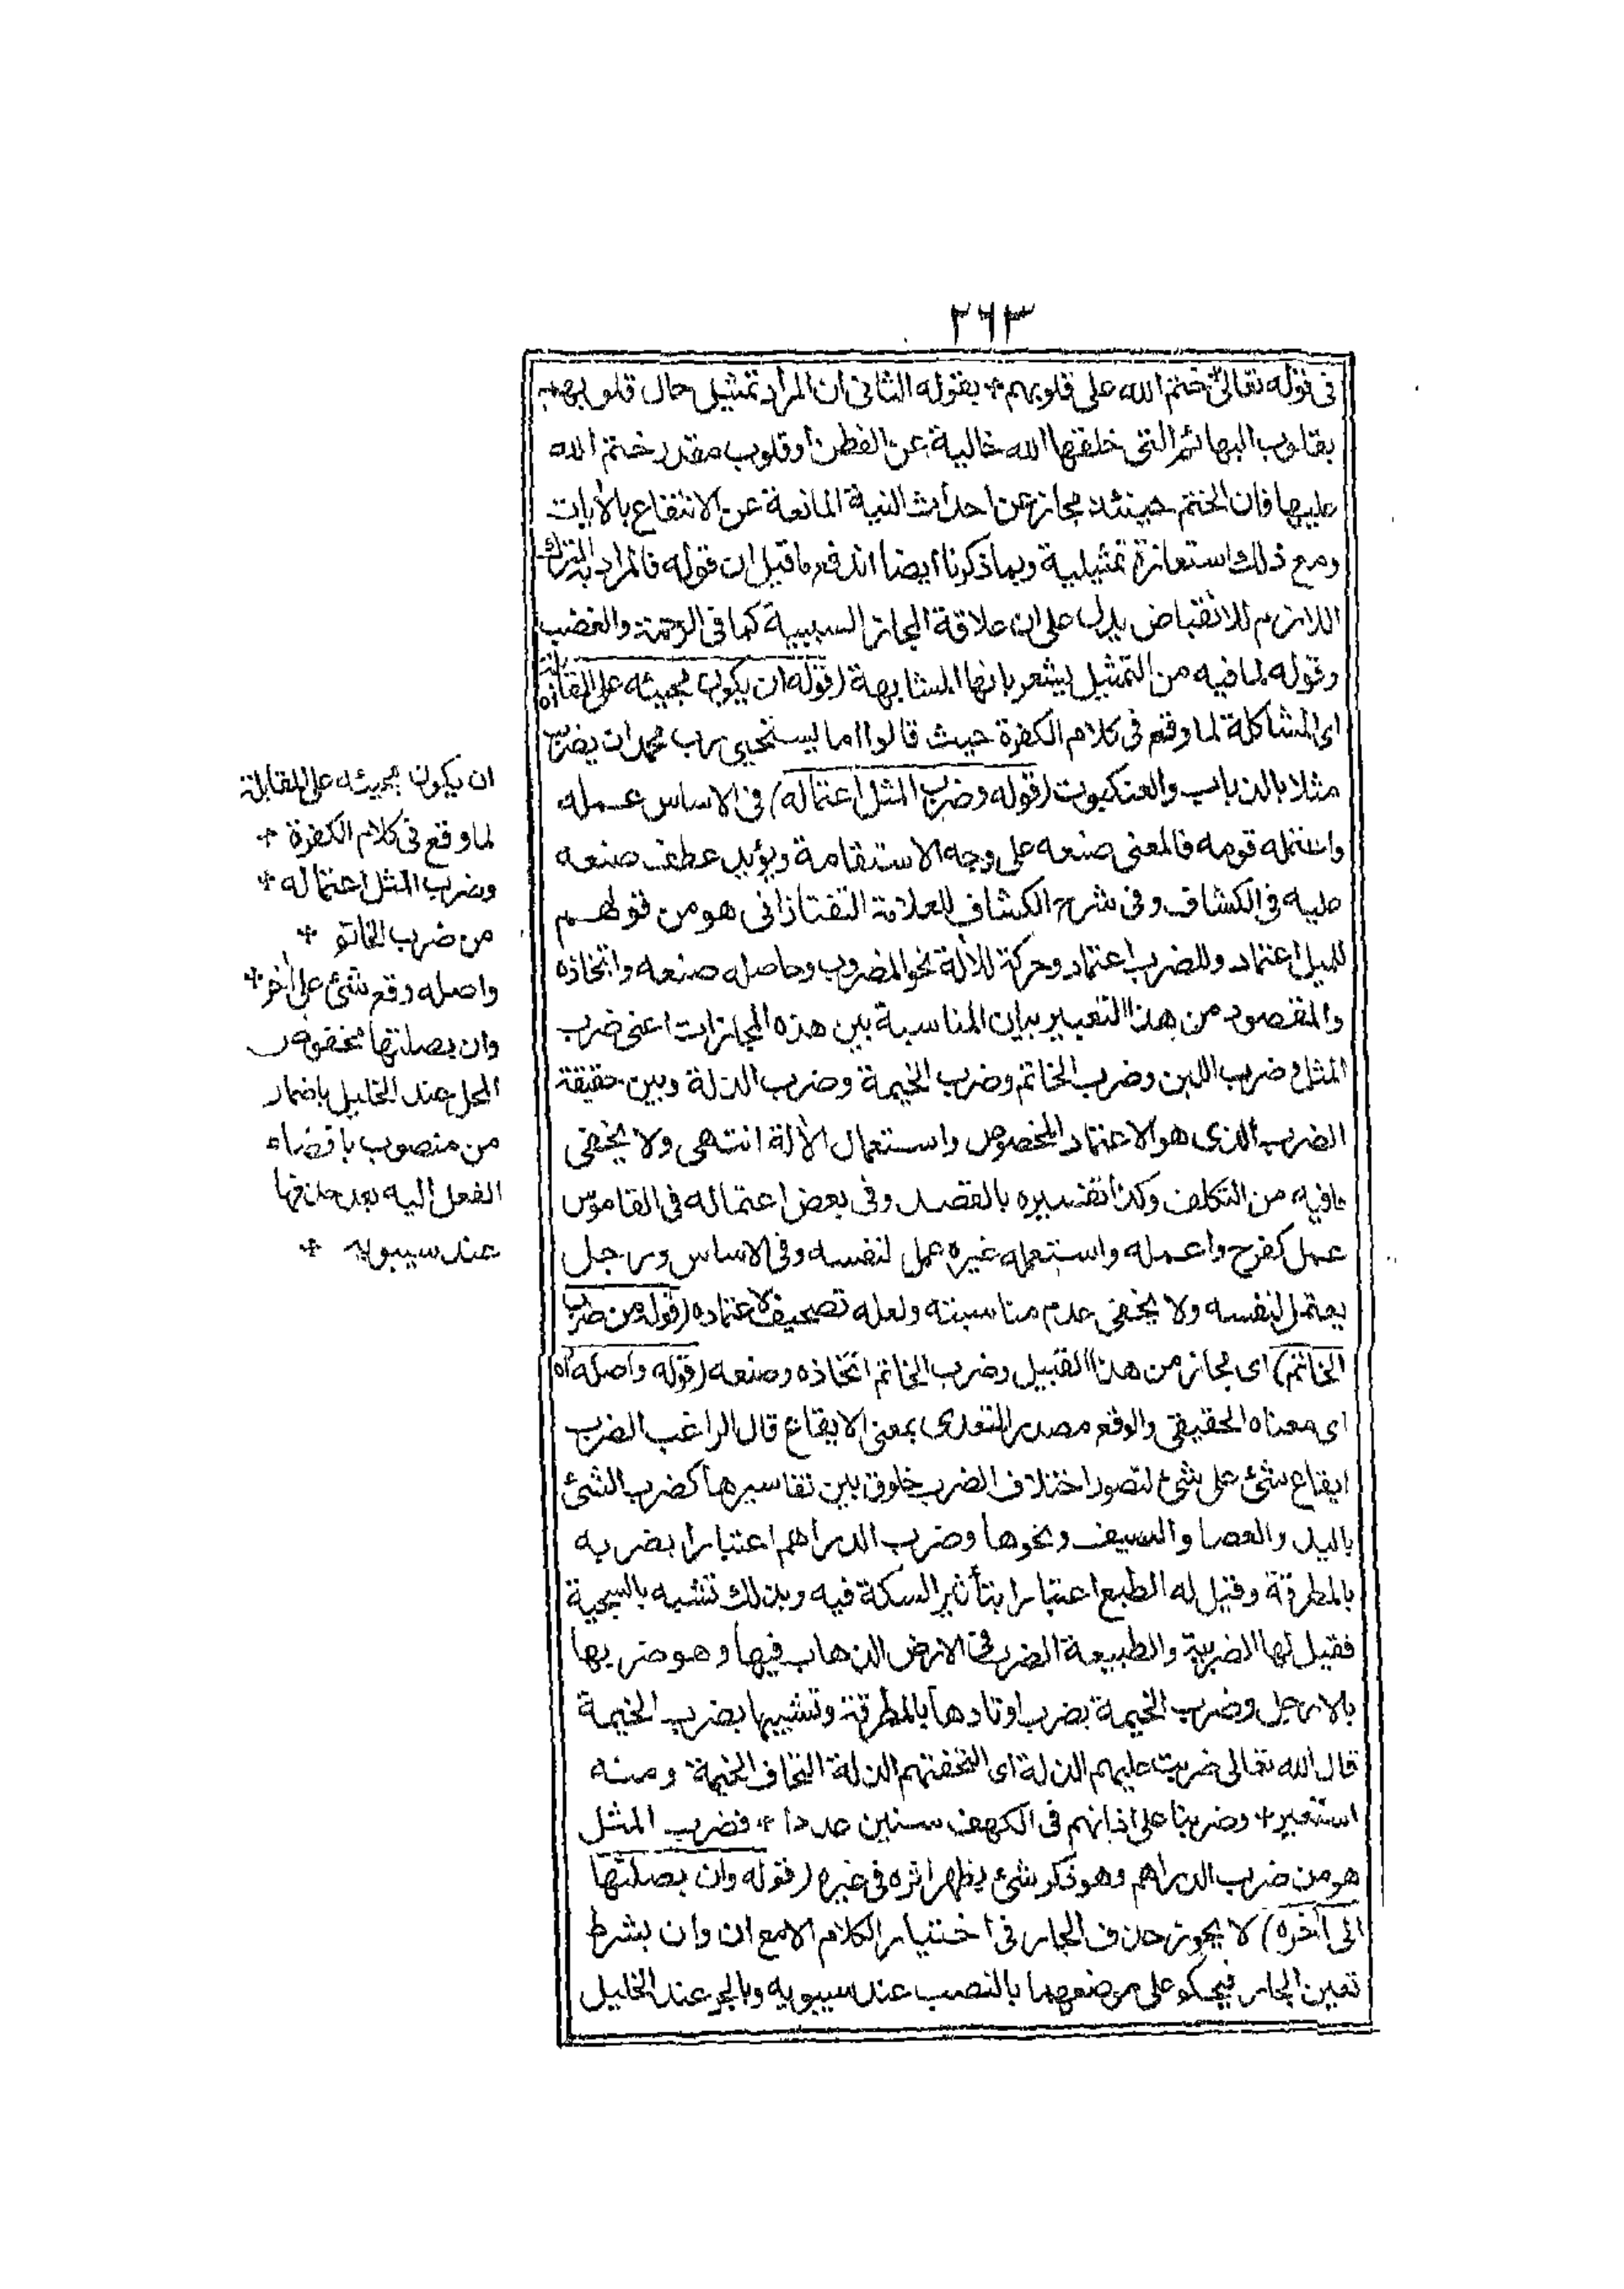 ٢٦٣
فى قوله تعالى ختم الله على قلوبهم + بقوله الثانى ان المراد تمثيل حال قلوبهم
بقلوب البهائم التى خلقها الله خالية عن الفطن او قلوب مقدر ختم الله
عليها فان الختم حينئذ مجاز عن احداث الهيئة المانعة عن الانتفاع بالآيات
ومع ذلك استعارة تمثيلية وبما ذكرنا ايضا اندفع ما قيل ان قوله فالمراد به الترك
اللازم للانقباض يدل على ان علاقة المجاز السببية كما فى الرحمة والغضب
وقوله لما فيه من التمثيل يشعر بانها المشابهة (قوله ان يكون مجيئه على المقابلة اه
اى المشاكلة لما وقع فى كلام الكفرة حيث قالوا اما يستحيى رب محمد ان يضرب
مثلا بالذباب والعنكبوت (قوله وضرب المثل اعتماله) فى الاساس عمله
واعتمله قومه فالمعنى صنعه على وجه الاستقامة ويؤيد عطف صنعه
عليه فى الكشاف وفى شرح الكشاف للعلامة التفتازانى هو من قولهم
لليل اعتماد وللضرب اعتماد وحركة للآلة نحو المضروب وحاصله صنعه واتخاذه
والمقصود من هذا التعبير بيان المناسبة بين هذه المجازات اعنى ضرب
المثل وضرب اللبن وضرب الخاتم وضرب الخيمة وضرب الذلة وبين حقيقة
الضرب الذى هو الاعتماد المخصوص واستعمال الآلة انتهى ولا يخفى
مافيه من التكلف وكذا تفسيره بالقصد وفى بعض اعتماله فى القاموس
عمل كفرح واعمله واستعمله غيره عمل لنفسه وفى الاساس ورجل
يعتمل لنفسه ولا يخفى عدم مناسبته ولعله تصحيف لاعتماده (قوله من ضرب
الخاتم) اى مجاز من هذا القبيل وضرب الخاتم اتخاذه وصنعه (قوله واصله اه
اى معناه الحقيقى والوقع مصدر المتعدى بمعنى الايقاع قال الراغب الضرب
ايقاع شئ على شئ لتصور اختلاف الضرب خلوق بين تفاسيرها كضرب الشئ
باليد والعصا والسيف ونحوها وضرب الدراهم اعتبارا بضربه
بالمطرقة وقيل له الطبع اعتبارا بتأثير السكة فيه وبذلك تشبه بالسجية
فقيل لها الضريبة والطبيعة الضرب فى الارض الذهاب فيها وهو ضربها
بالارجل وضرب الخيمة بضرب اوتادها بالمطرقة وتشبيها بضرب الخيمة
قال الله تعالى ضربت عليهم الذلة اى التحفتهم الذلة التحاف الخيمة ومنه
استعير + وضربنا على اذانهم فى الكهف سنين عددا + فضرب المثل
هو من ضرب الدراهم وهو ذكر شئ يظهر اثره فى غيره (قوله وان بصلتها
الى آخره) لا يجوز حذف الجار فى اختيار الكلام الا مع ان وان بشرط
تعين الجار فيحكم على موضعهما بالنصب عند سيبويه وبالجر عند الخليل
ان يكون مجيئه على المقابلة
لما وقع فى كلام الكفرة +
وضرب المثل اعتماله +
من ضرب الخاتم +
واصله وقع شئ على آخر +
وان بصلتها مخفوض
المحل عند الخليل باضمار
من منصوب بافضاء
الفعل اليه بعد حذفها
عند سيبويه +